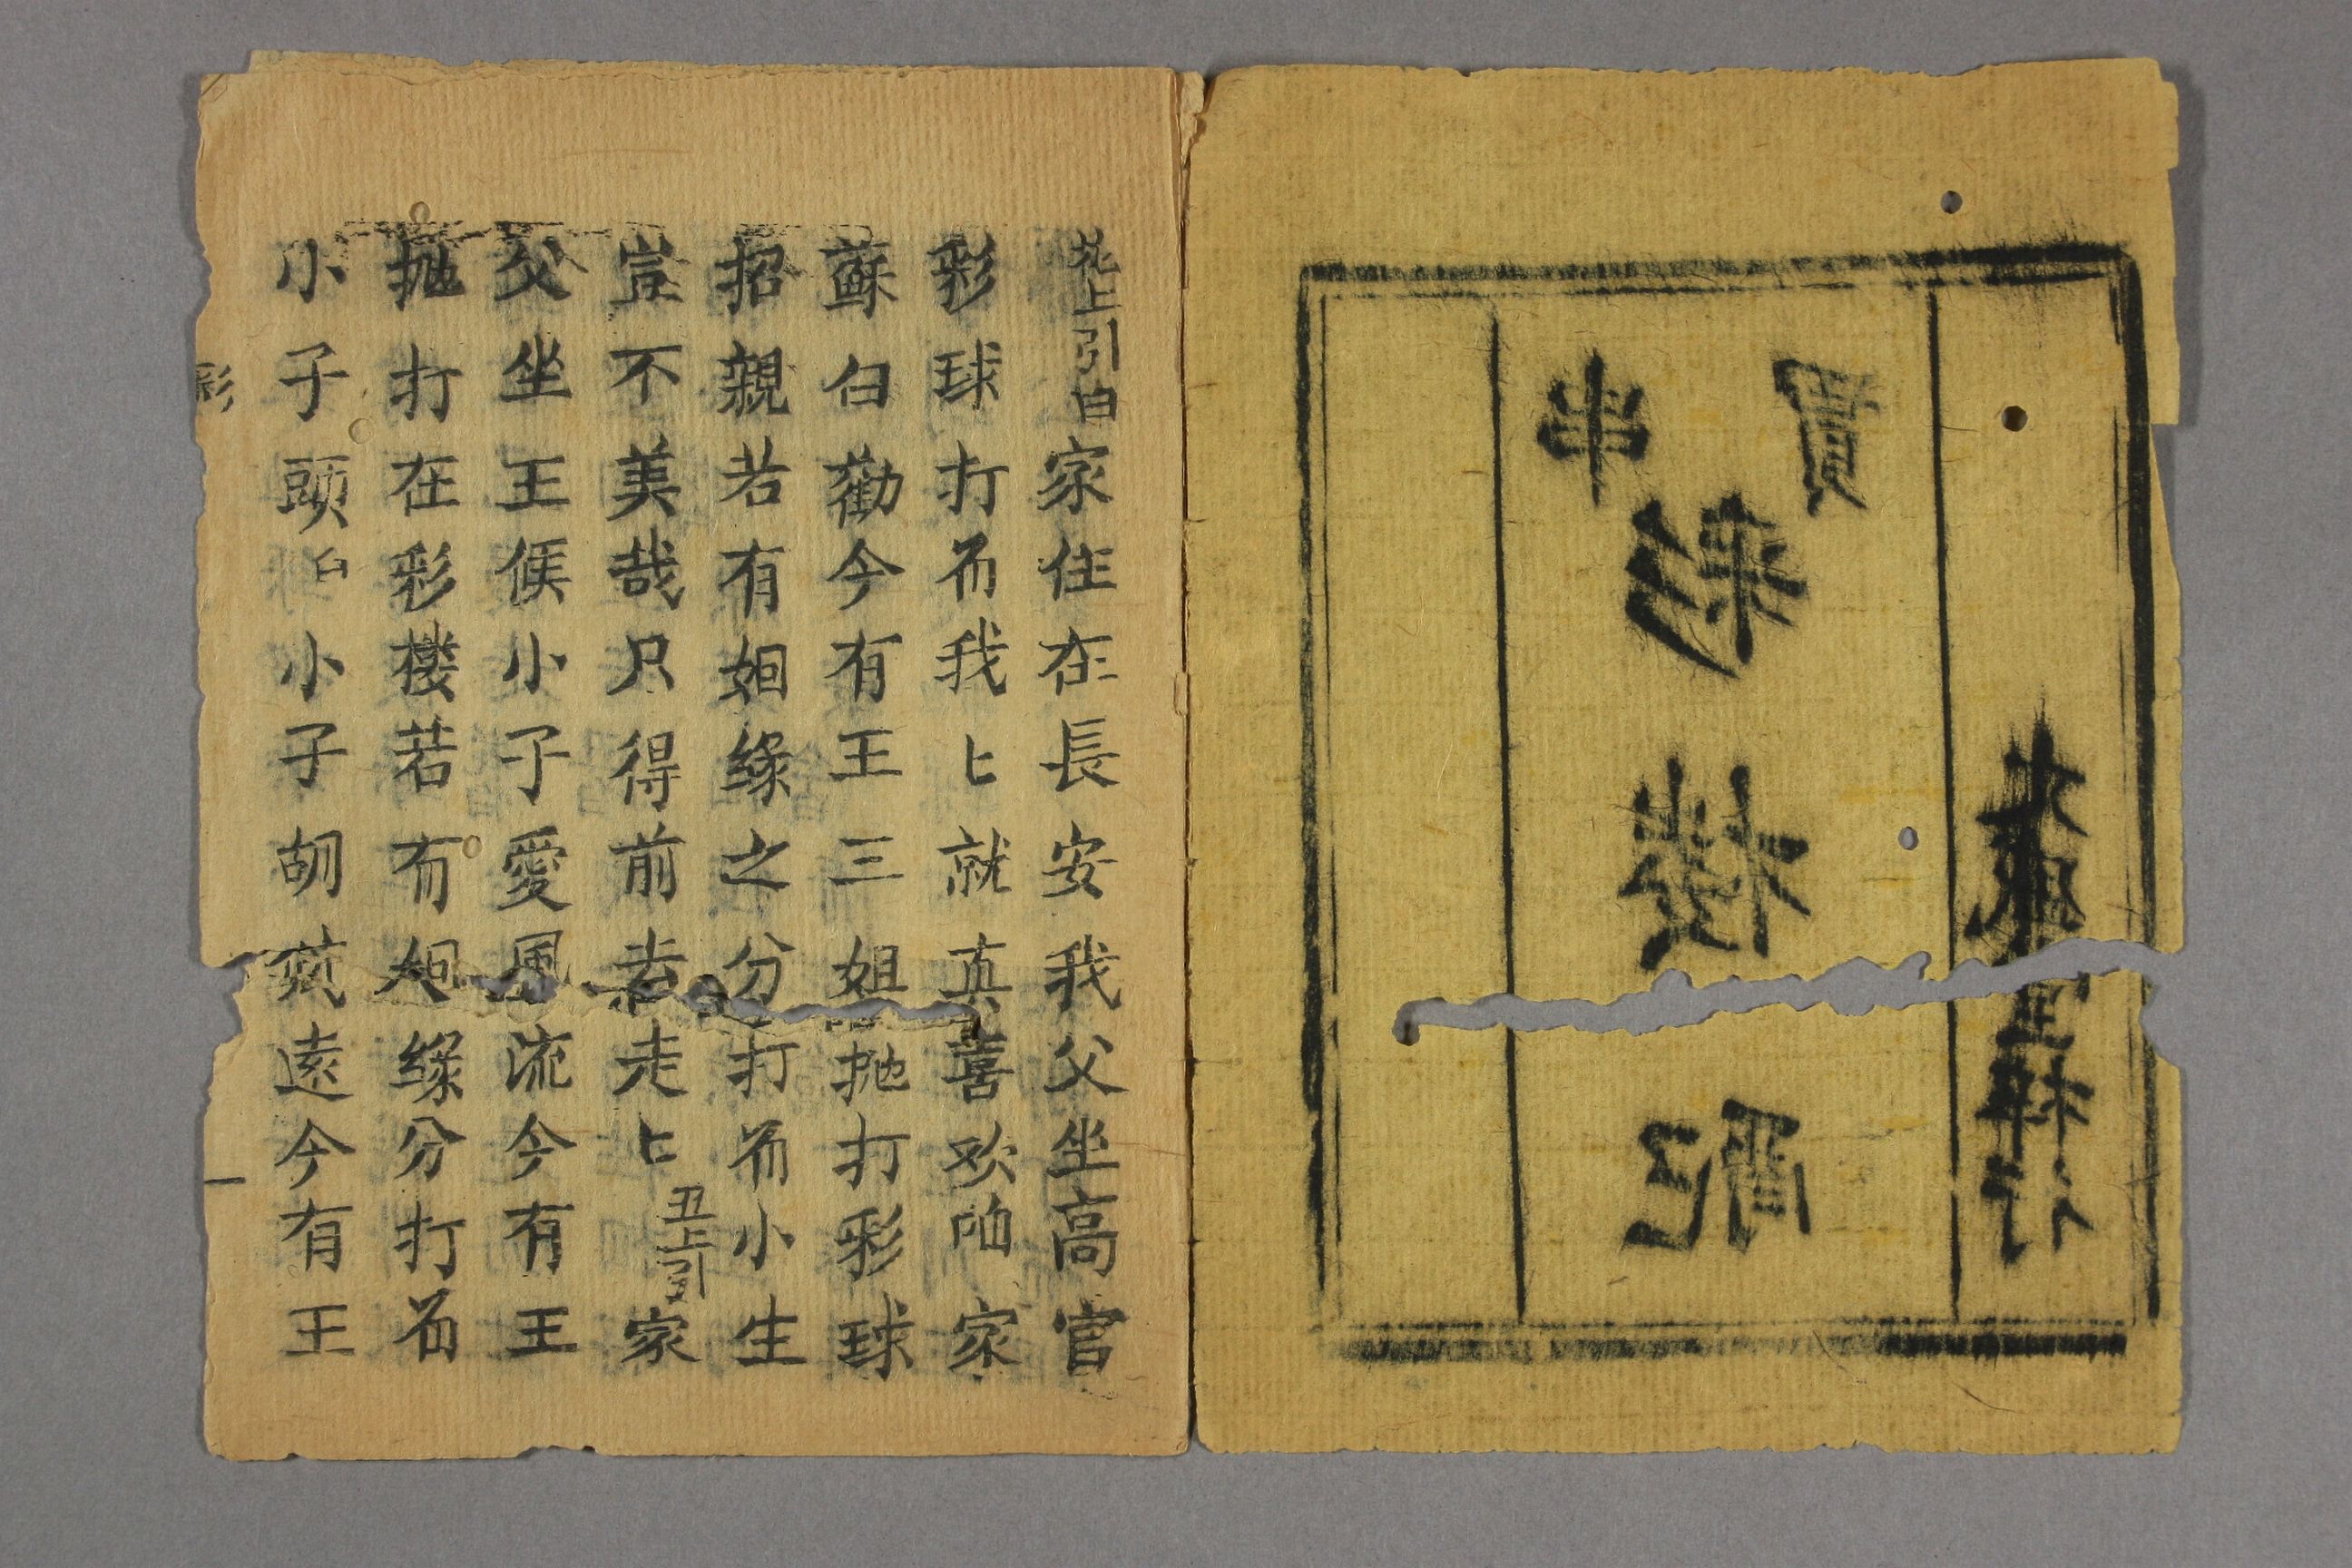 貫串
彩楼配
花上引白家住在長安我父坐高官
彩球打而我〻就真喜欢 家
蘇白勸今有王三姐抛打彩球
招親若有姻緣之分打而小生
豈不美哉只得前去走〻丑上引家
父坐王侯小子愛風流今有王
抛打在彩楼若有姻緣分打而
小子頭白小子胡 遠今有王
彩
一